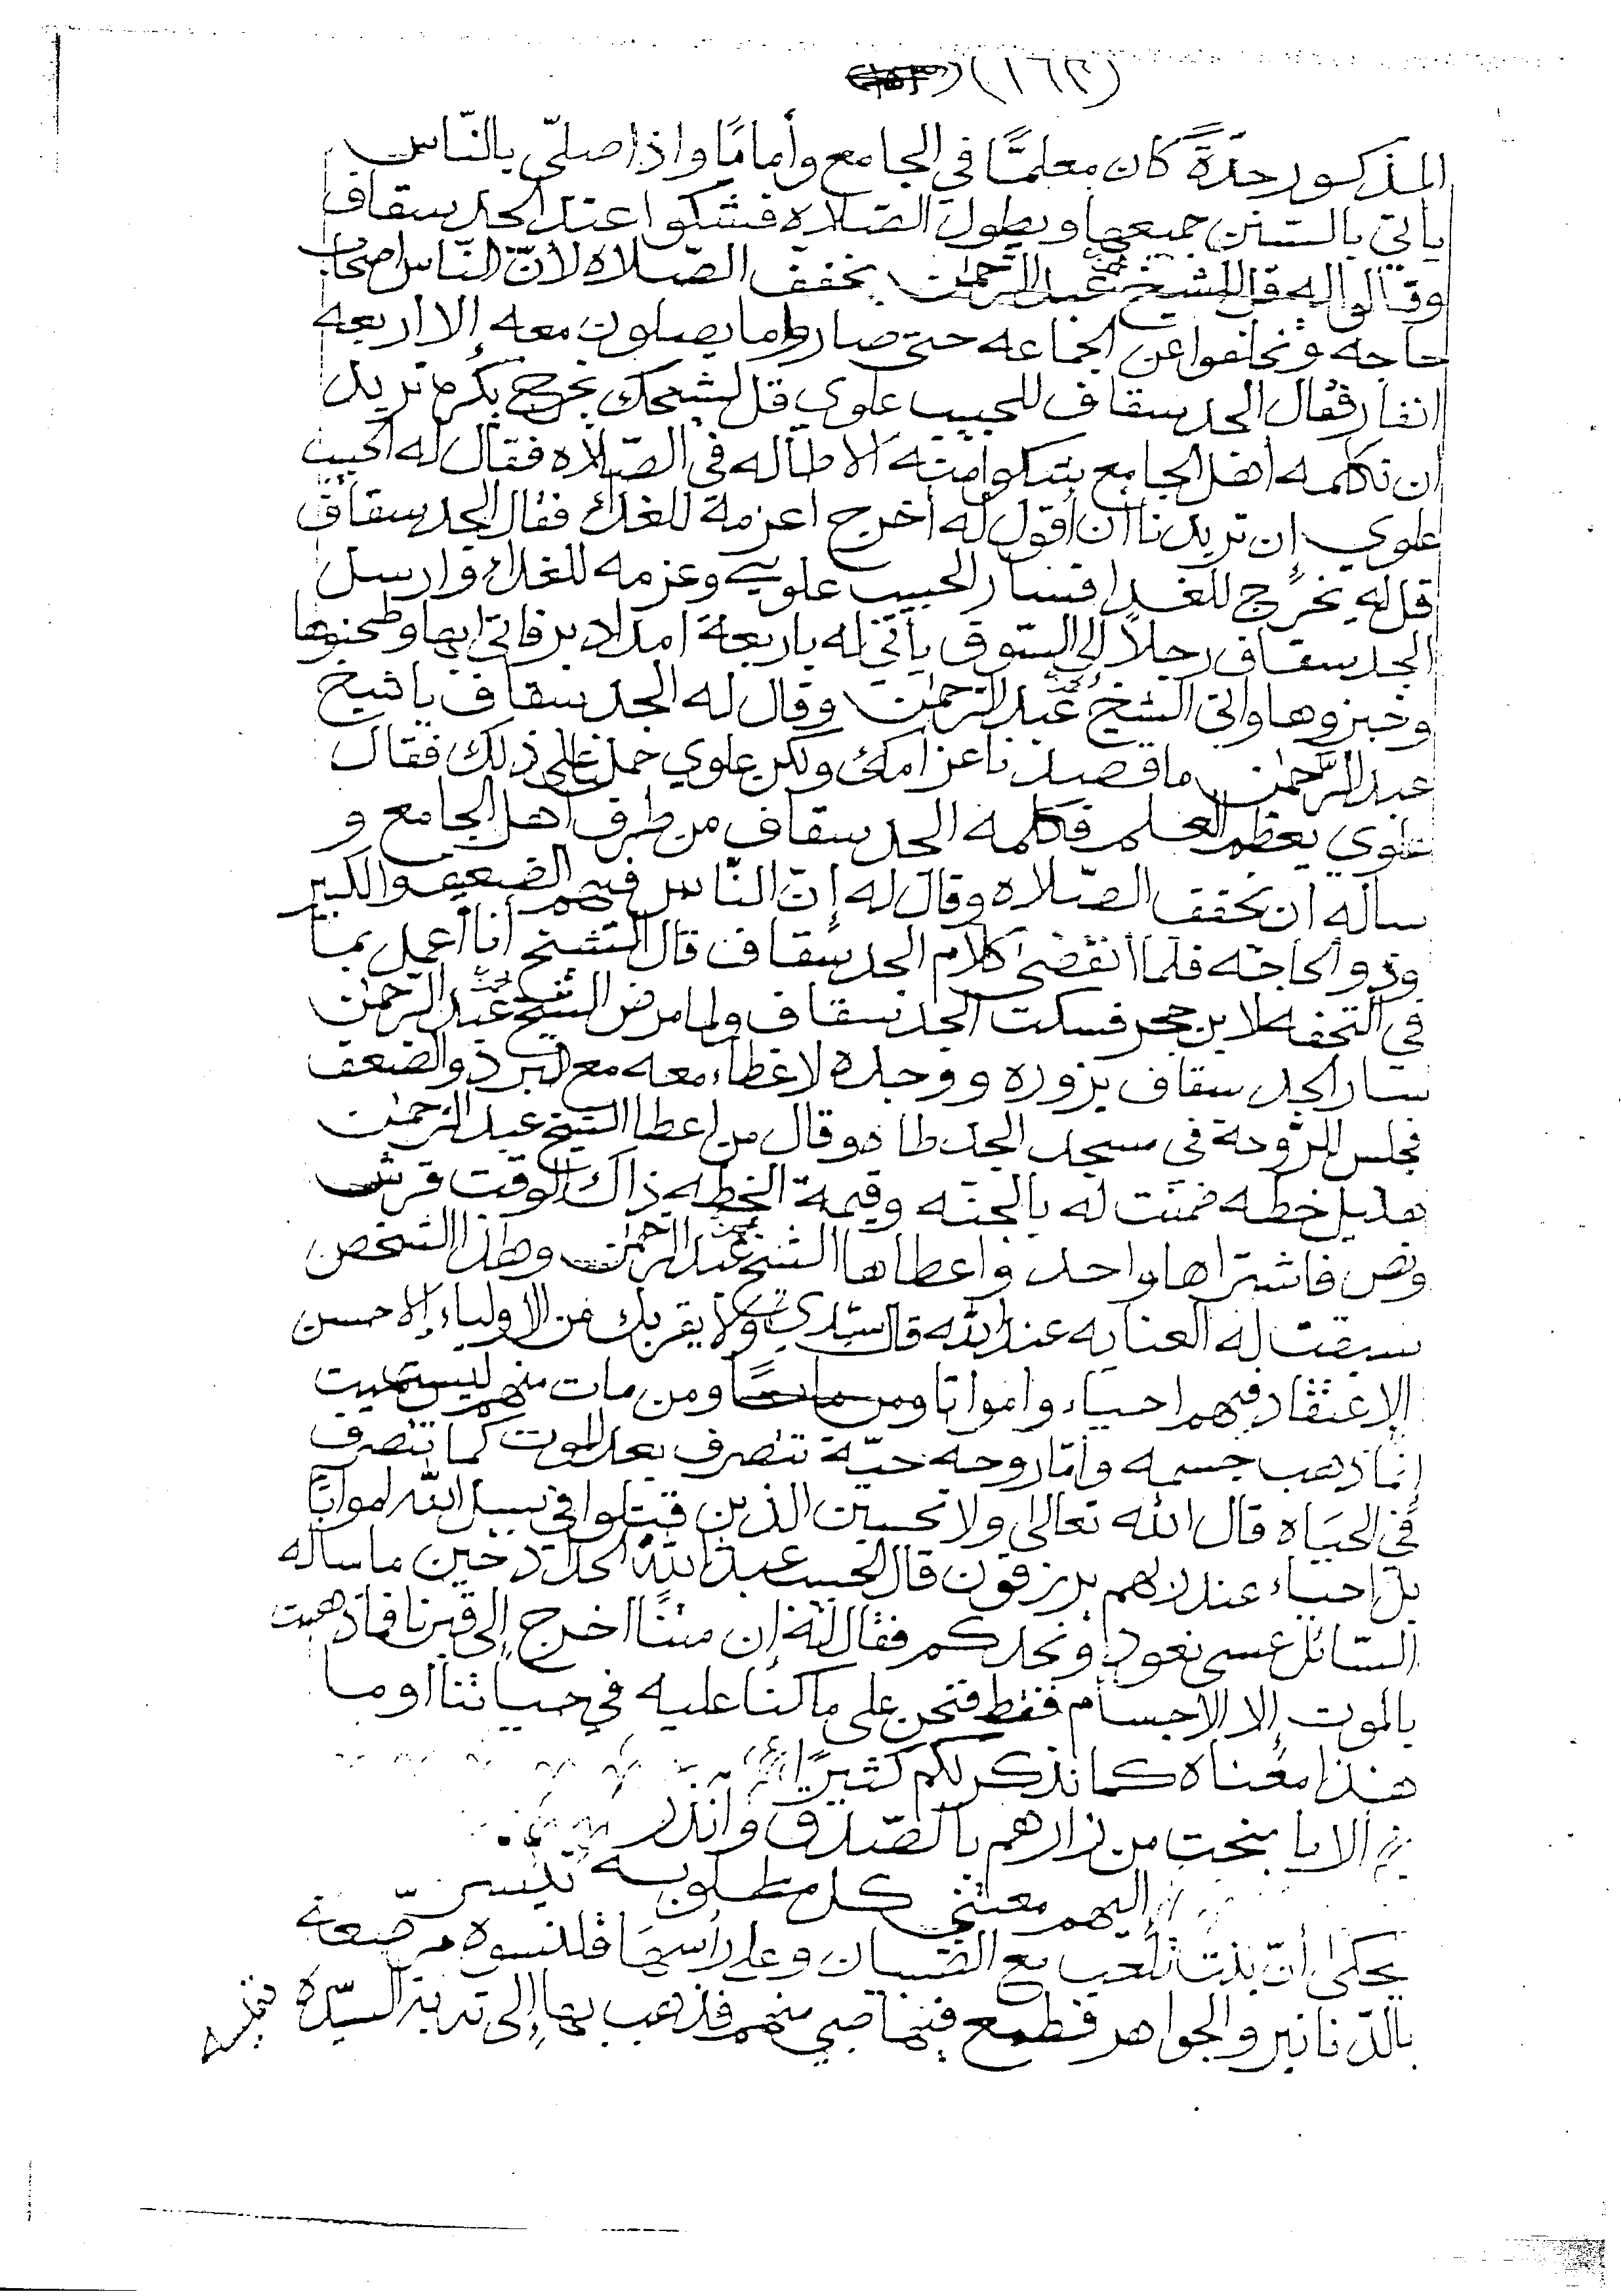 (١٦٣)
المذكور حدّةً كان معلمًّا في الجامع وأمامًا واذا صلّى بالنّاس
ياتي بالسّنن جميعها ويطول الصّلاه فشكوا عند الجد سقاف
وقالوا له قل للشيخ عبد الرّحمٰن يخفف الصّلاه لأنّ النّاس اصحاب
حاجه وتخلفوا عن الجماعه حتى صاروا ما يصلون معه إلا اربعه
انفار فقال الجد سقاف للحبيب علوي قل لشيخك يخرج بكره نريد
ان نكلمه اهل الجامع يشكوا منه الاطاله في الصّلاه فقال له الحبيب
علوي إن تريدنا أن أقول له أخرج اعزمة للغداء فقال الجد سقاف
قل له يخرج للغدا فسار الحبيب علوي وعزمه للغداء وارسل
الجد سقاف رجلاً إلى السّوق ياتي له باربعة امداد بر فاتى بها وطحنوها
وخبزوها واتى الشيخ عبد الرّحمٰن وقال له الجد سقاف يا شيخ
عبد الرّحمٰن ما قصدنا عزامك ولكن علوي حملنا على ذلك فقال
علوي يعظم العلم فكلمه الجد سقاف من طرف اهل الجامع و
ساله ان يخفف الصّلاه وقال له إنّ النّاس فيهم الضعيف والكبير
وذو الحاجه فلمّا أنقضى كلام الجد سقاف قال الشيخ أنا أعمل بما
في التحفه لابن حجر فسكت الجد سقاف ولما مرض الشيخ عبد الرحمٰن
سار الجد سقاف يزوره ووجده لا غطاء معه مع البرد والضعف
فجلس للرّوحة في مسجد الجد طٰه وقال من اعطا الشيخ عبد الرّحمٰن
هديل خطه ضمنت له بالجنّه وقيمة الخطه ذاك الوقت قرش
ونص فاشتراها واحد واعطاها الشيخ عبد الرحمٰن وهٰذا الشخص
سبقت له العنايه عند الله قال سيّدي ولا يقربك من الأولياء إلا حسن
الإعتقاد فيهم احياء وامواتا ومن مات منهم ليس بميت
إنّما ذهب جسمه وأمّا روحه حيّة تتصرف بعد الموت كما تتصرف
في الحيَاه قال الله تعالى ولا تحسبن الذين قتلوا في سبيل الله امواتًا
بل احياء عند ربهم يرزقون قال الحبيب عبد الله الحداد حين ما ساله
السّائل عسى نعود ونجدكم فقال له إن متنا اخرج إلى قبرنا فما ذهبت
بالموت إلا الاجسام فقط فنحن على ما كنا عليه في حياتنا او ما
هٰذا معناه كما نذكر لكم كثيرًا
الا يا بخت من زارهم بالصّدق وانذر
إليهم معتني كل مطلوبه تيسر
يحكى أنّ بنت تلعب مع الصّبيان وعلى رأسها قلنسوة مرصعة
بالدّنانير والجواهر فطمع فيها صبي منهم فذهب بها إلى تربة السيّدة نفيسه